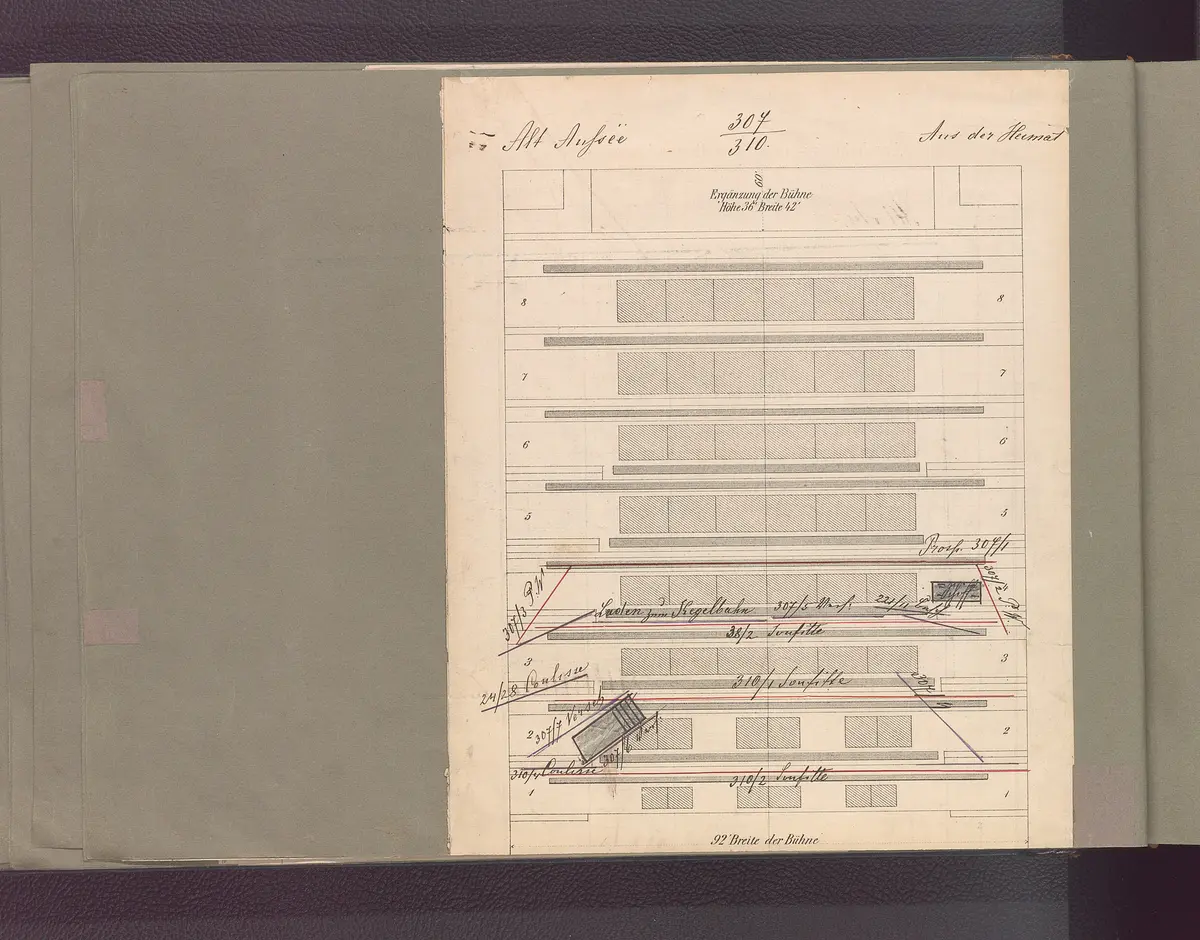 Alt Aussee
307
310.
Aus der Heimat
60'
Ergänzung der Bühne
Höhe 36' Breite 42'
8 8
7 7
6 6
5 5
Prosp. 307/1
307/3 P.W.
307/2 P.W.
Laden zum Kegelbahn 307/5 Vers. 22/11
38/2 Soufitte
3 3
24/28 Coulisse
310/1 Soufitte
307/7 Versetz
2 2
307/6
310/4 Coulisse
310/2 Soufitte
1 1
92' Breite der Bühne